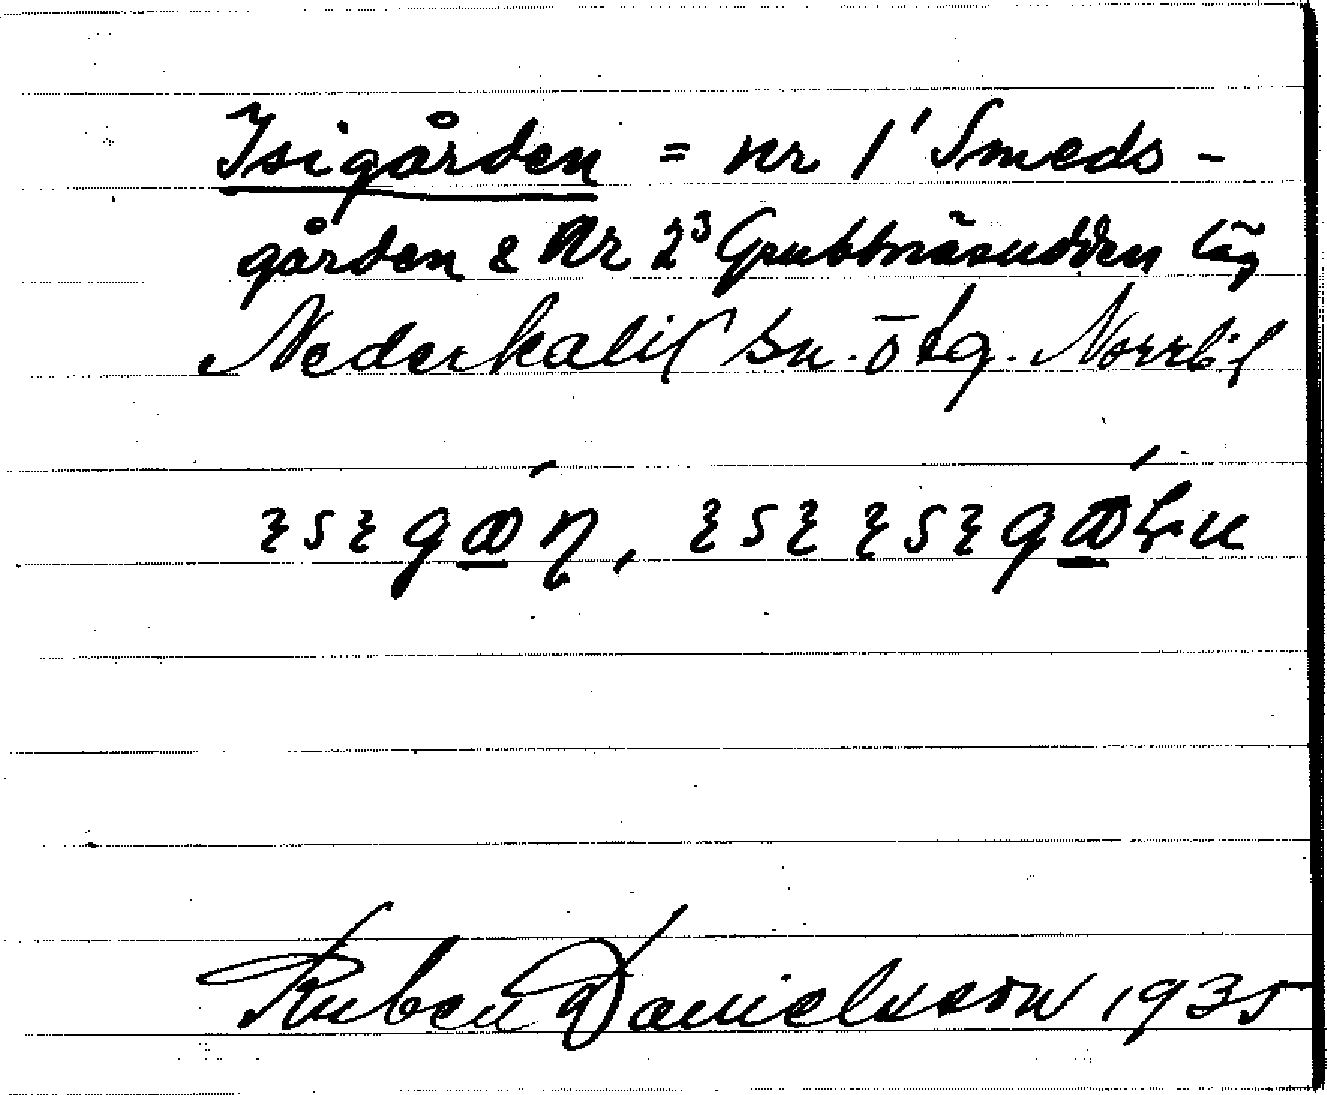 Isigården = nr 1¹ Smeds-
gården & Nr 2³ Grubbnäsudden läg
Nederkalix sn. Ö tg. Norrb. l
Ruben Danielsson 1935